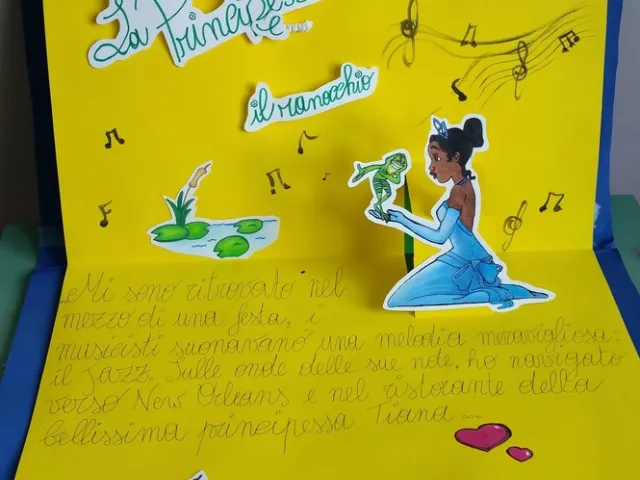 La Principessa
e
il ranocchio
Mi sono ritrovato nel
mezzo di una festa, i
musicisti suonavano una melodia meravigliosa:
il jazz. Sulle onde delle sue note, ho navigato
verso New Orleans e nel ristorante della
bellissima principessa Tiana...